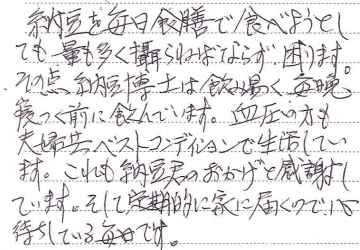 納豆を毎日食膳で食べようとし
ても量も多く攝らねばならず、困ります。
その点納豆博士は飲み易く毎晩
寝つく前に飲んでいます。血圧の方も
夫婦共ベストコンディションで生活してい
ます。これも納豆君のおかげと感謝し
ています。そして定期的に家に届くので心
待ちしている毎日です。